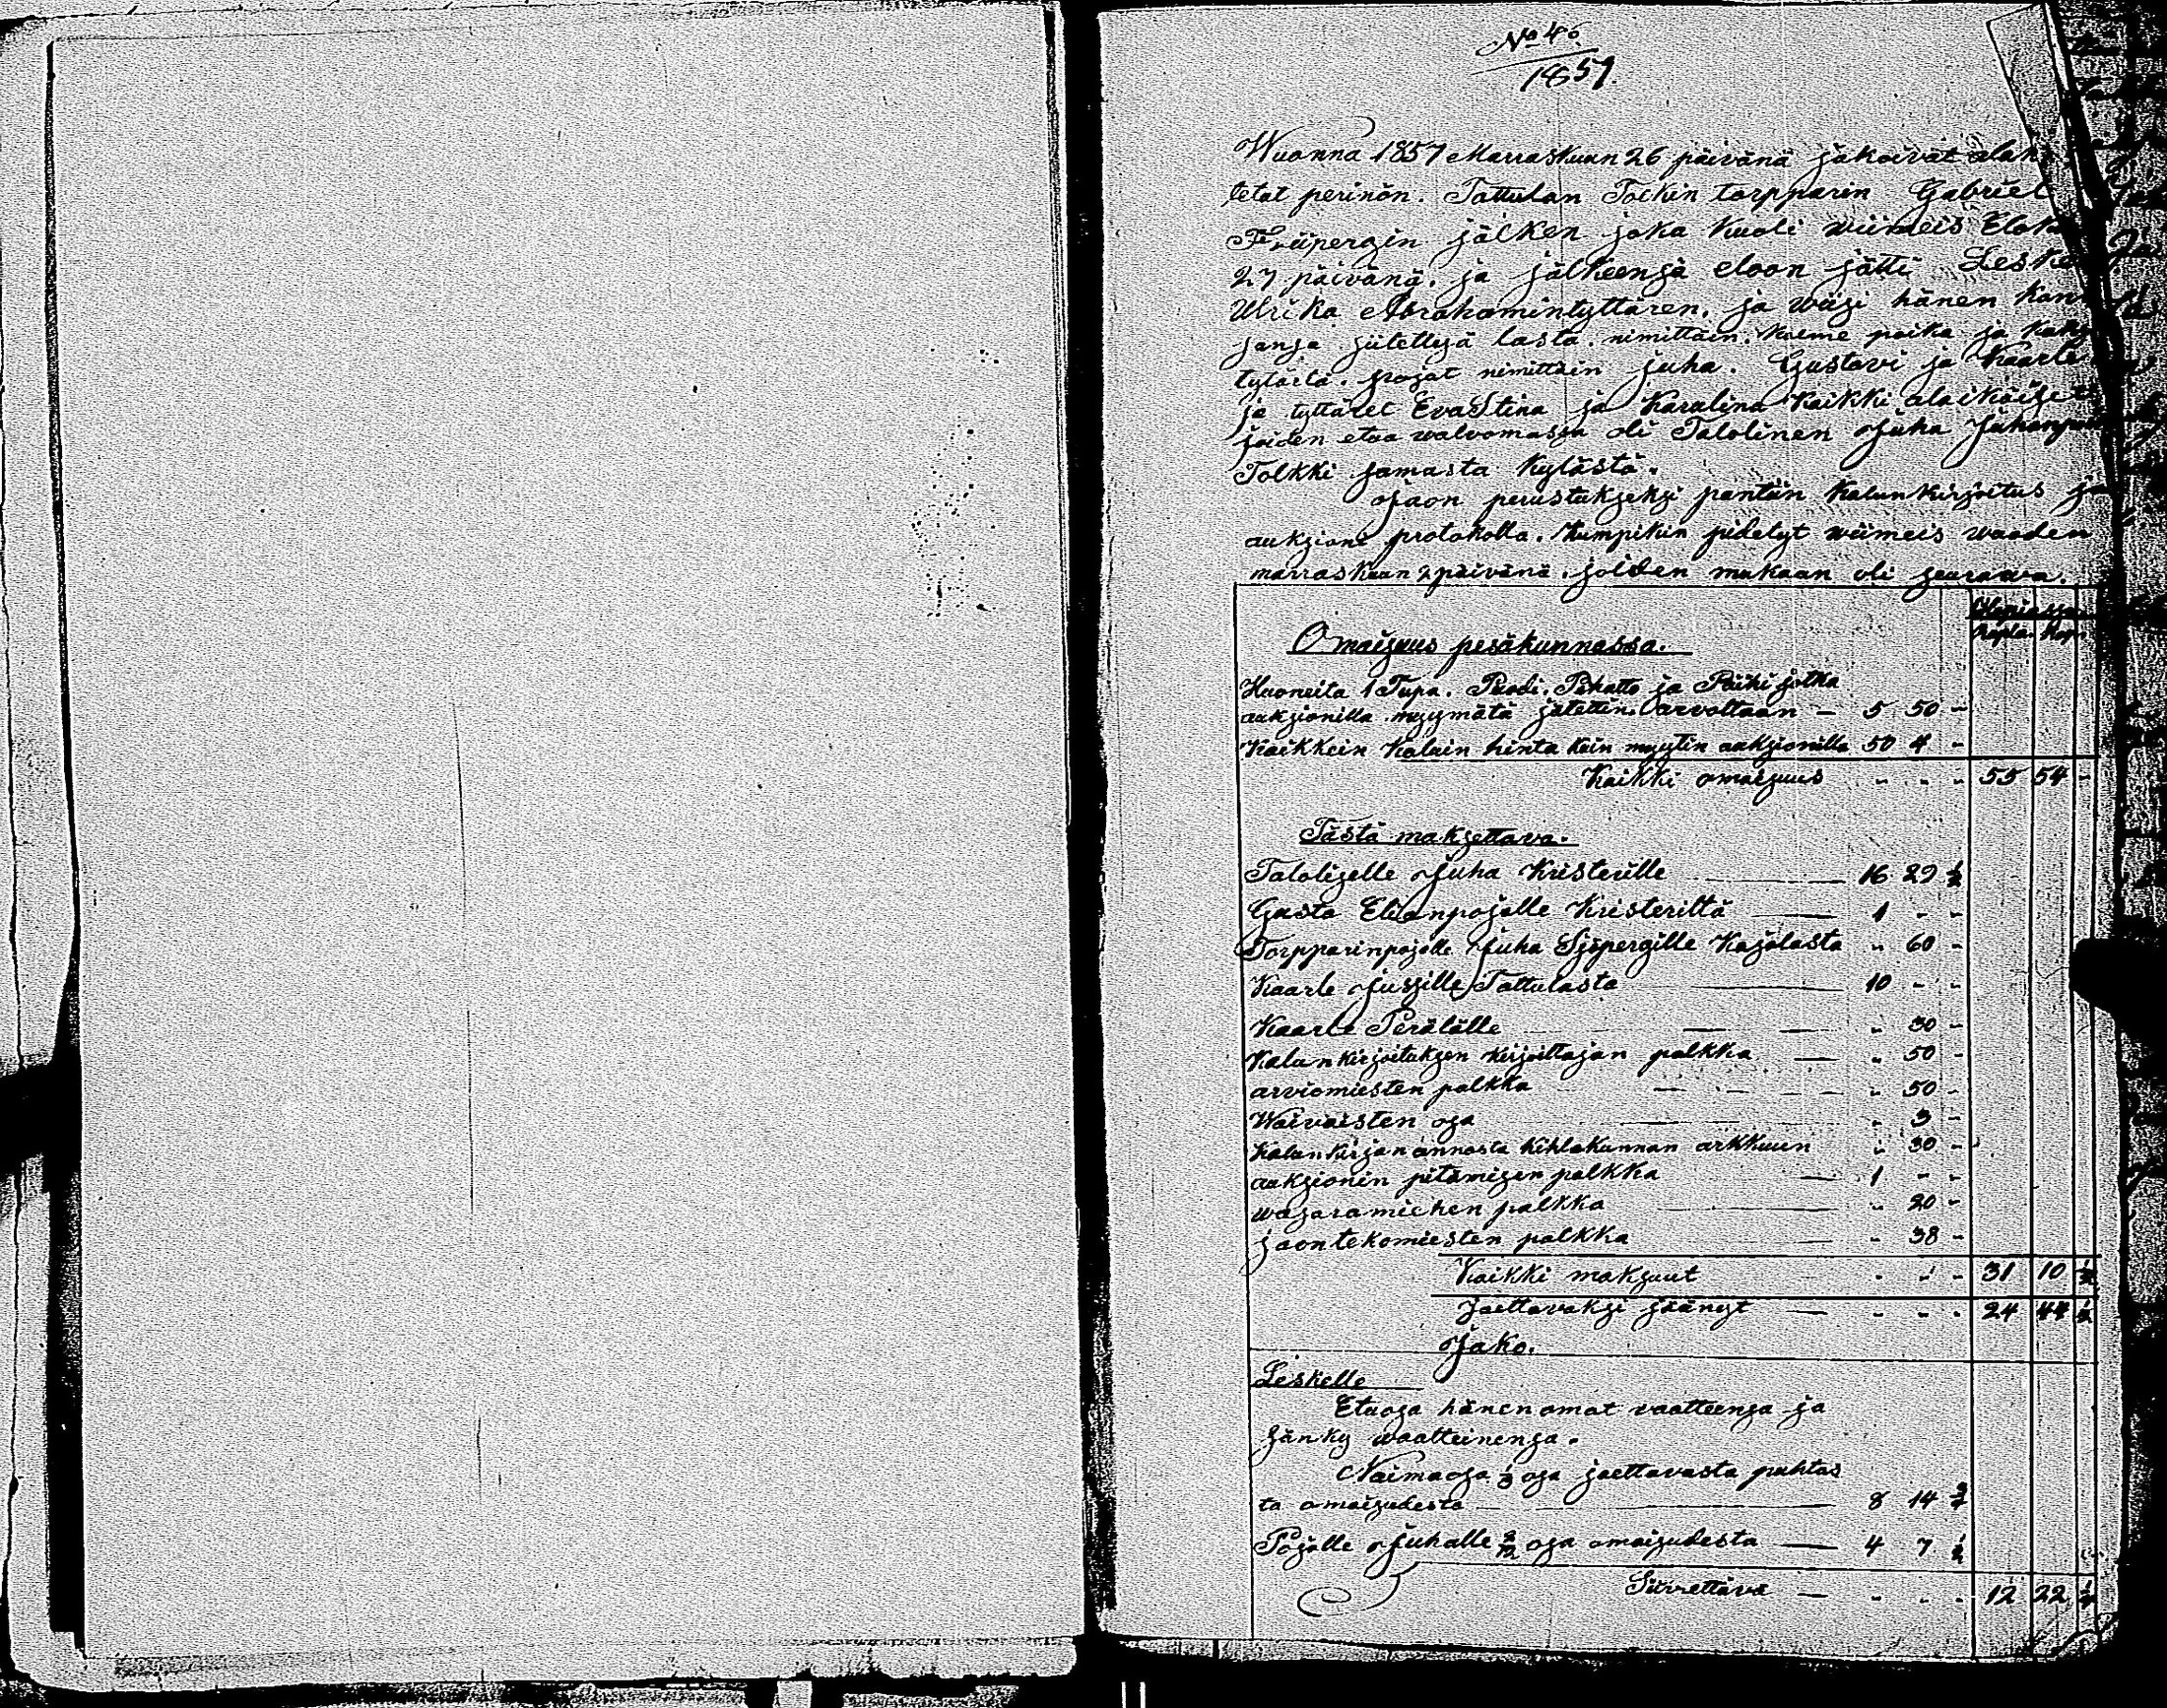 No 4.
1857.
Wuonna 1857 Marraskuun 26 päivänä jakoivat alah
letat perinön. Tattulan Tolkin torpparin Gabriel
Friipergin jälken joka kuoli wiimeis Elok
27 päivänä. ja jälkeensä eloon jätti Leske
Ulrika Abrahamintyttären. ja wiisi hänen kans
sansa siitettyä lasta. nimittäin. kolme poika ja kaks
tytärtä. pojat nimittäin Juha. Gustavi ja Kaarle
ja tyttäret EvaStina ja Karalina kaikki alaikäiset
joiden etua walvomassa oli Talolinen Juha Juhanpoi
Tolkki samasta kylästä.
Jaon perustukseksi pantiin kalunkirjoitus ja
auksioni protokolla. kumpikin pidetyt wiimeis wuoden
marraskuun 2 päivänä. joiden mukaan oli seuraava.
Hopiassa
Rupla. Kop.
Omaisuus pesäkunnassa.
Huoneita 1 Tupa. Puodi. Pihatto ja Riihi jotka
auksionilla myymätä jätettin. arvoltaan – 5 50 –
Kaikkein kaluin hinta kuin myytin auksionilla 50 4 –
Kaikki omaisuus - - - 55 54 -
Tästä maksettava.
Taloliselle Juha Kristerille 16 29 1/2
Gusta Elianpojalle Kristeriltä 1 - -
Torpparinpojalle Juha Sjöpergille Kajalasta " 60 -
Kaarle Jussille Tattulasta 10 - -
Kaarle Perälälle " 30 -
Kalunkirjoituksen kirjoittajan palkka " 50 -
arviomiesten palkka " 50 -
Waivaisten osa " 3 -
kalunkirjan annosta kihlakunnan arkkuun " 30 -
auksionin pitämisen palkka 1 - -
wasaramiehen palkka " 20 -
jaontekomiesten palkka " 38 -
Kaikki maksuut - - - 31 10 1/2
Jaettavaksi jäänyt - - - 24 44 1/2
Jako.
Leskelle
Etuosa hänen omat vaatteensa ja
sänky waatteinensa.
Naimaosa 1/3 osa jaettavasta puhtas
ta omaisudesta 8 14 3/4
Pojalle Juhalle 2/12 osa omaisudesta 4 7 1/2
Siirrettävä - - - 12 22 1/4